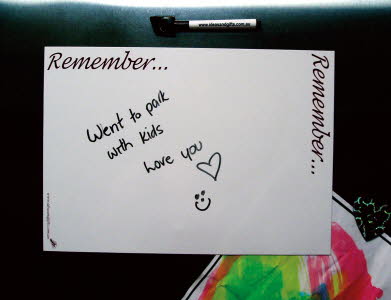 www.ideasandgifts.com.au
Remember...
Remember...
Went to park
with kids
Love you